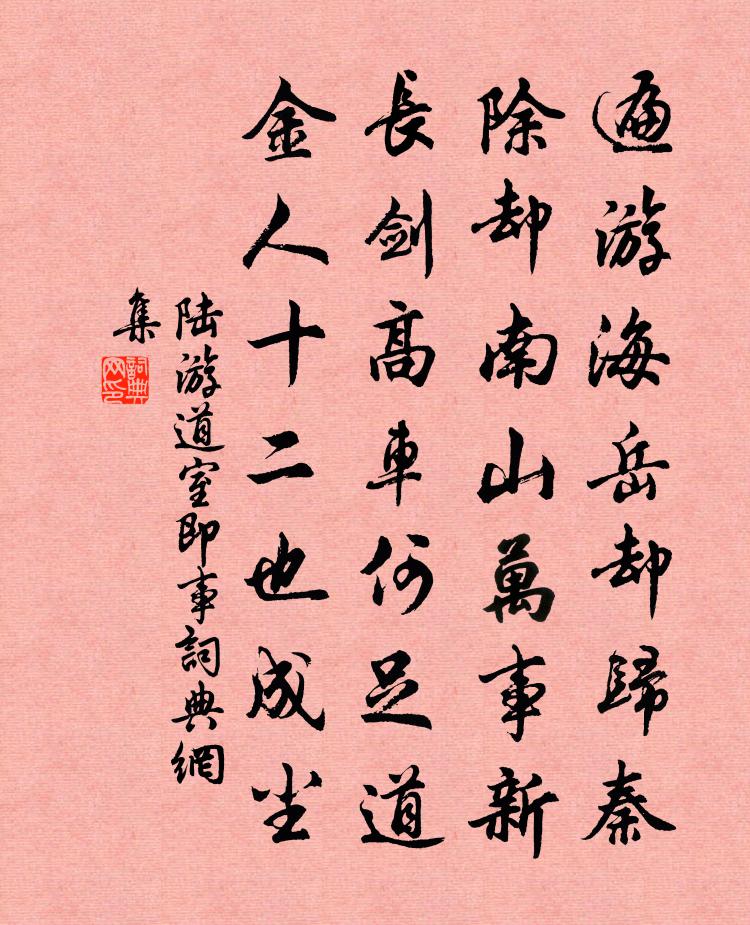 遍游海岳却歸秦
除却南山萬事新
長劍高車何足道
金人十二也成尘
陆游道室即事詞典網
集
詞典
网印